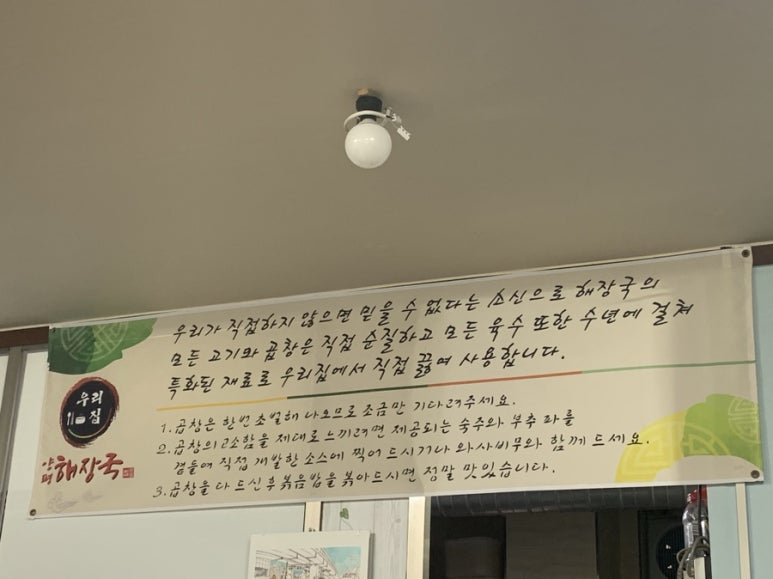 우리가 직접하지 않으면 믿을 수 없다는 소신으로 해장국의
모든 고기와 곱창은 직접 손질하고 모든 육수 또한 수년에 걸쳐
특화된 재료로 우리집에서 직접 끓여 사용합니다.
우리
집
양평 해장국
1. 곱창은 한번 초벌해 나오므로 조금만 기다려주세요.
2. 곱창의 고소함을 제대로 느끼려면 제공되는 숙주와 부추 파를
곁들여 직접 개발한 소스에 찍어 드시거나 와사비무와 함께 드세요.
3. 곱창을 다 드신 후 볶음밥을 볶아드시면 정말 맛있습니다.